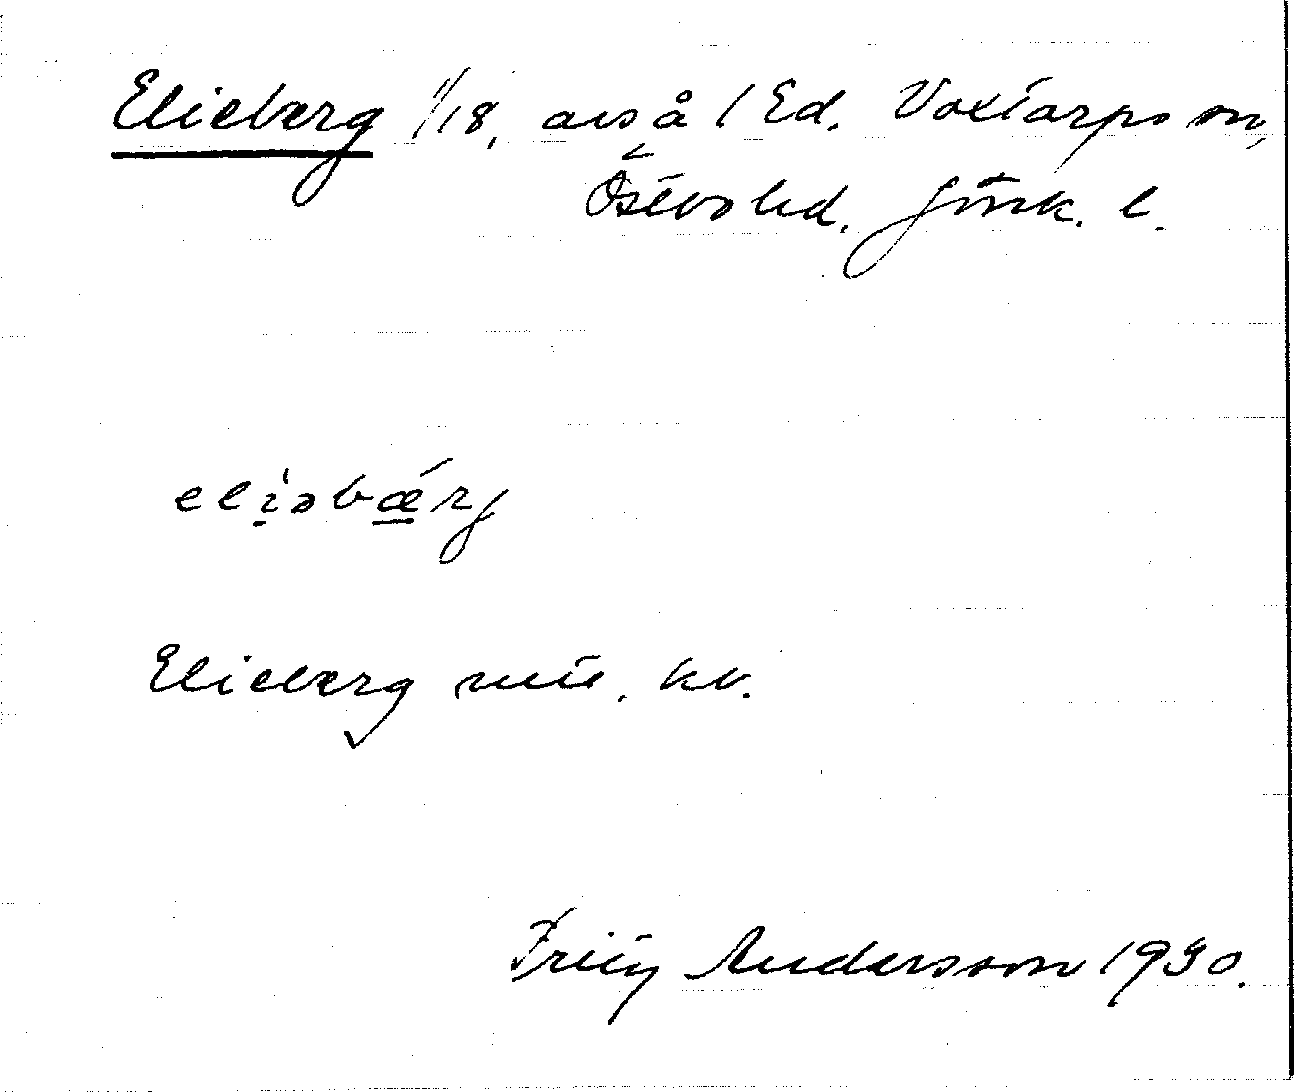 Elieberg 1/18, avs å 1 Ed. Voxtorps sn,
Östbo hd. Jönk. l.
eliəbærj
Elieberg mtl. kv.
Fritz Andersson 1930.